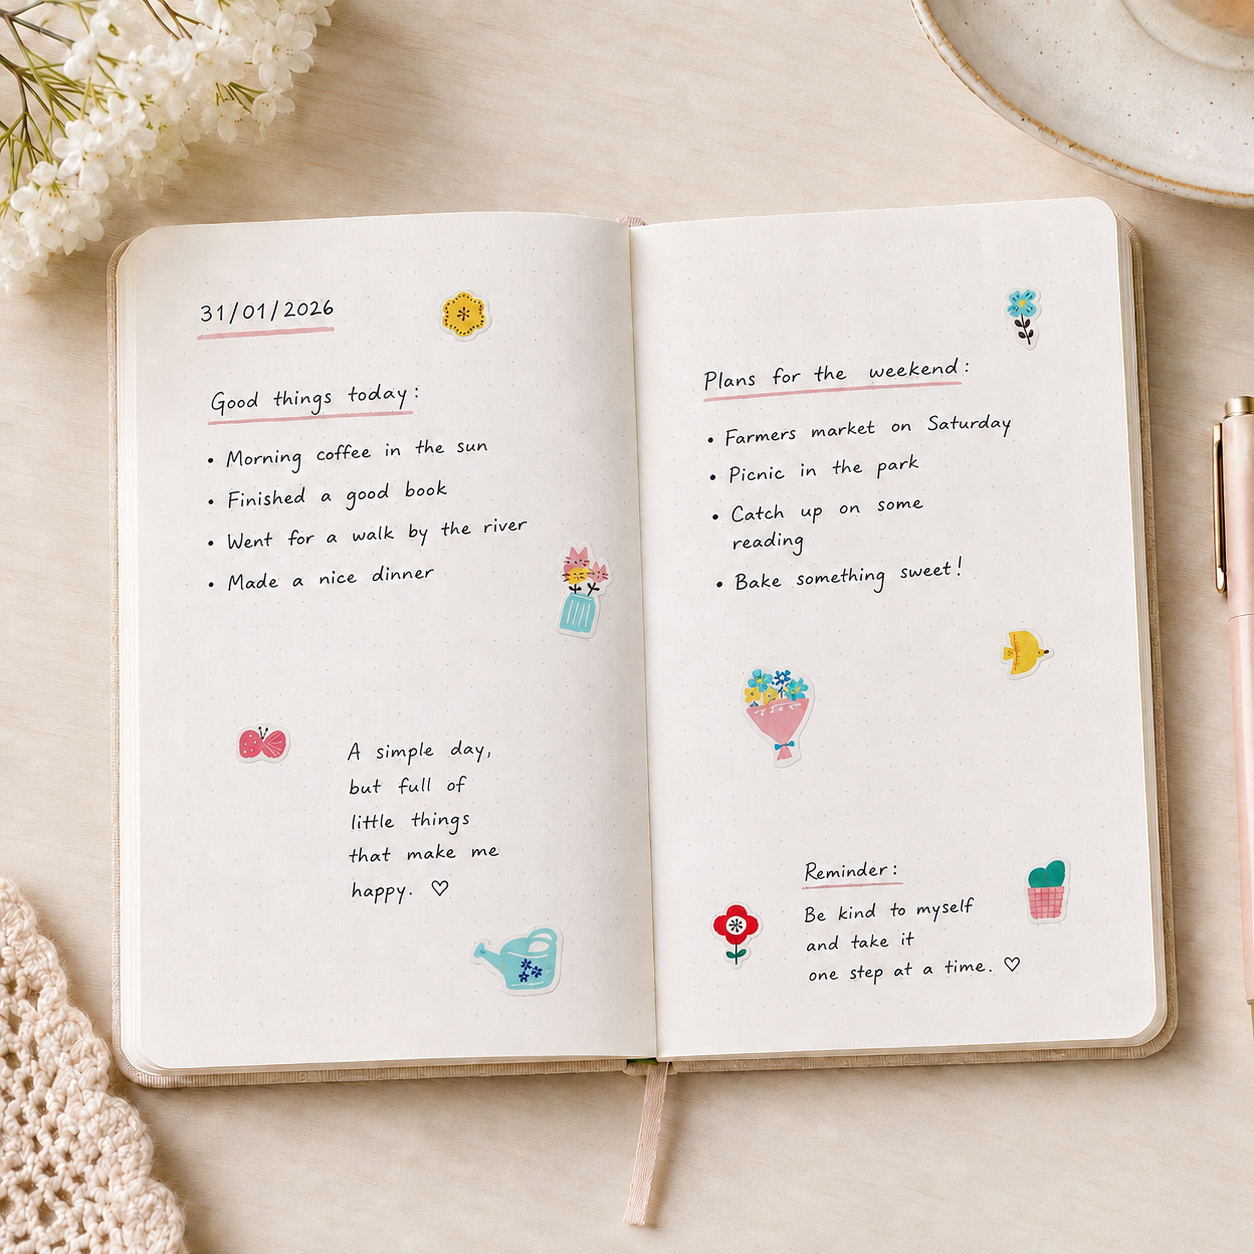 31/01/2026
Good things today:
• Morning coffee in the sun
• Finished a good book
• Went for a walk by the river
• Made a nice dinner
A simple day,
but full of
little things
that make me
happy. ♡
Plans for the weekend:
• Farmers market on Saturday
• Picnic in the park
• Catch up on some
reading
• Bake something sweet!
Reminder:
Be kind to myself
and take it
one step at a time. ♡